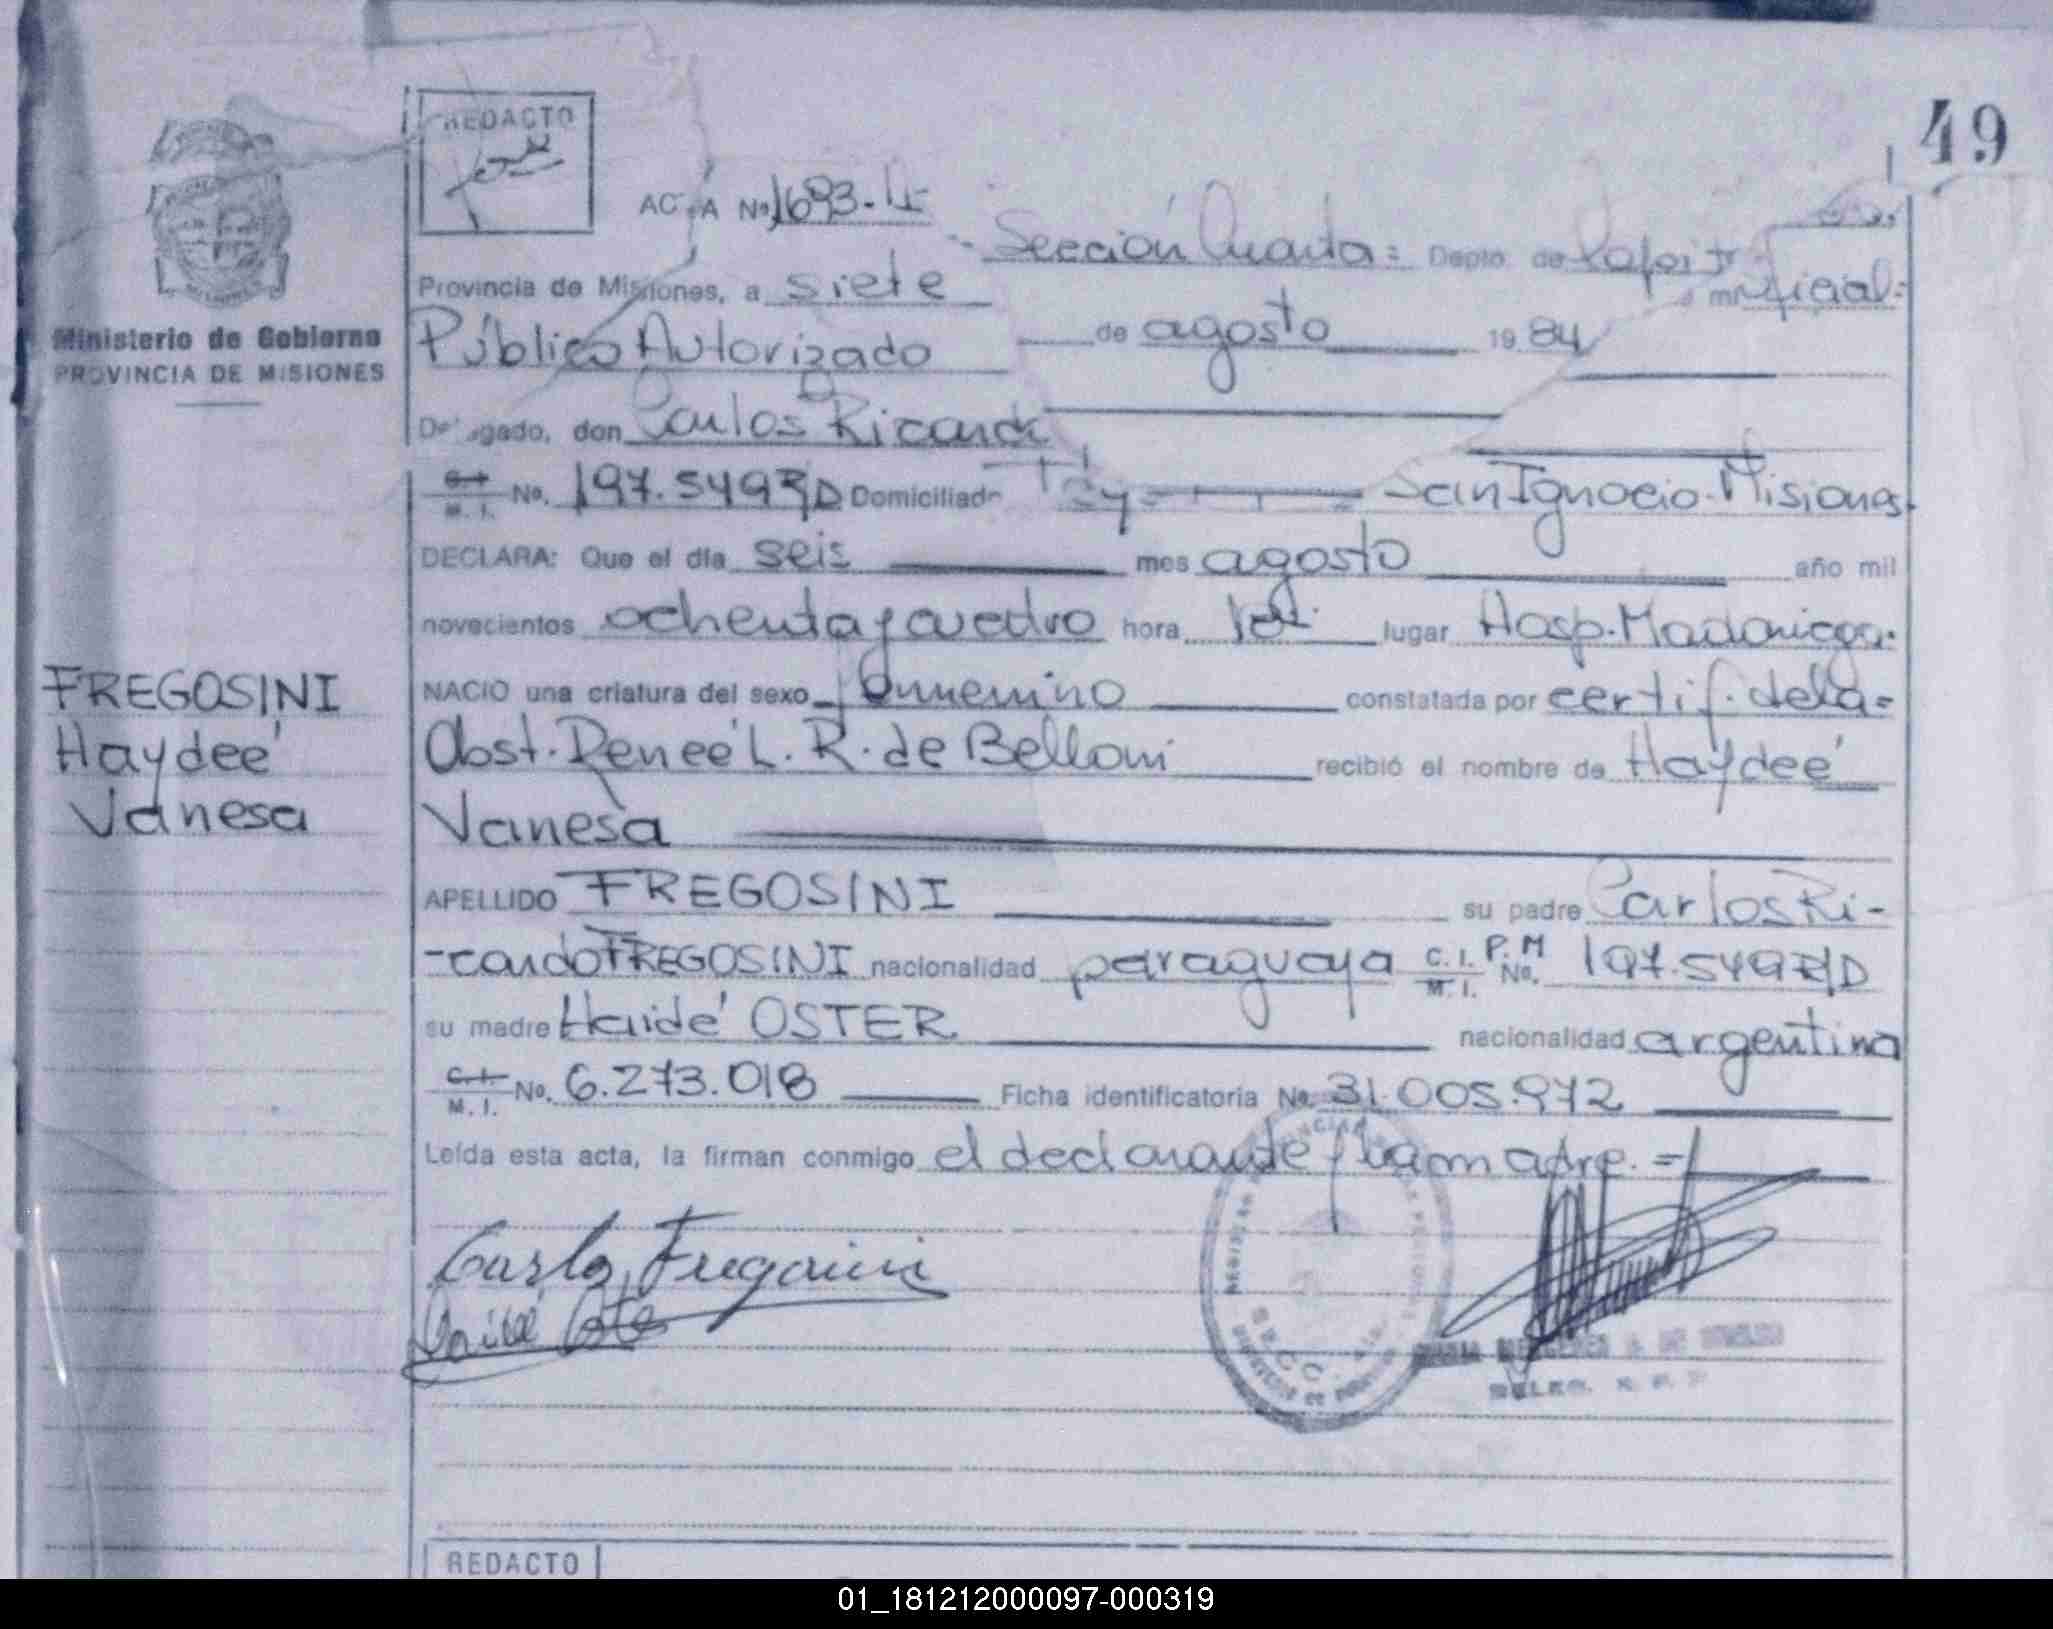 49
REDACTO
ACTA No. 1693-
Sección Cuarta = Depto. de
Provincia de Misiones, a siete
oficial =
Ministerio de Gobierno
PROVINCIA DE MISIONES
Público Autorizado de agosto 1984
Delegado, don Carlos Ricardo
C.I. M. I. No. 197.549 Domiciliado San Ignacio - Misiones
DECLARA: Que el día seis mes agosto año mil
novecientos ochenta y cuatro hora lugar Hosp. Madariaga.
FREGOSINI
Haydeé
Vanesa
NACIO una criatura del sexo femenino constatada por certif. de la =
Obst. Reneé L. R. de Belloni recibió el nombre de Haydeé
Vanesa
APELLIDO FREGOSINI su padre Carlos Ri-
-cardo FREGOSINI nacionalidad paraguaya C.I. M. I. P.M No. 197.549
su madre Haidé OSTER nacionalidad argentina
C.I. M. I. No. 6.273.018 Ficha identificatoria No. 31.005.972
Leída esta acta, la firman conmigo el declarante y la madre. =
Carlos Fregosini
REDACTO
01_181212000097-000319